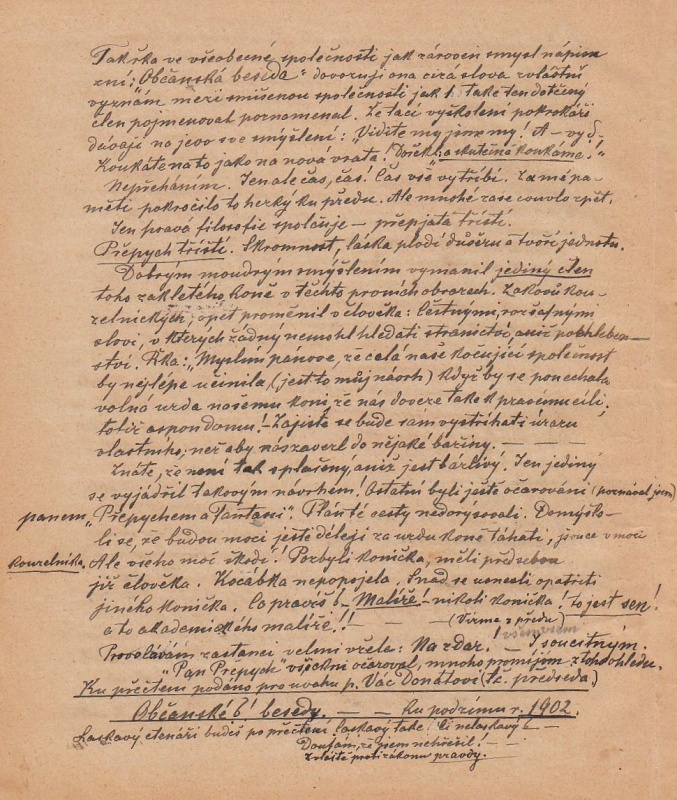 Takřka ve všeobecné společnosti jak zároveň smysl nápisu
zní: „Občanská beseda" dovozují ona cizá slova zvláštní
význam mezi smíšenou společností jak 1. také ten dotičný
člen pojmenoval poznamenal. Ze tací vyškolení pokrokáři
dávají na jevo své smýšlení: „Vidíte my jsme my! A – vy
Koukáte na to jako na nová vrata. a skutečně koukáme!"
Nepřechánim. Jen ale čas, čas! Čas vše vytříbí. Za mé pa-
měti pokročilo to hezky ku předu. Ale mnohé zase couvlo zpět.
Jen pravá filosofie spolčuje – přepjatá tříští.
Přepych tříští. Skromnost, láska plodí důvěru a tvoří jednotu.
Dobrým moudrým smýšlením vymanil jediný člen
toho zakletého koně v těchto prvních obrazech. Zakousů kou-
zelnických, opět proměnil v člověka: Čestnými, rozšafnými
slovi, v kterých žádný nemohl hledati stranictví, aniž pochleben-
ství. Řka: „Myslím pánové, že celá naše kočující společnost
by nejlépe učinila (jest to můj návrh) když by se ponechala
volná uzda našemu koni, že nás doveze také k pravému cíli.
totiž aspoň domu! – Zajisté se bude sám vystříhati úrazu
vlastního, než aby nás zavezl do nějaké bařiny. — — —
Znáte, že není tak splašený, aniž jest bázlivý. Ten jediný
se vyjádřil takovým návrhem! Ostatní byli ještě očarováni (poznával jsem)
panem „Přepychem a Fantasií". Plán té cesty nedorysovali. Domýšle-
li se, že budou moci ještě déleji za uzdu koně táhati, jsouce v moci
kouzelníka. Ale všeho moc škodí! Pozbyli koníčka, měli před sebou
již člověka. Kocábka nepopojela. Snad se usnesli opatřiti
jiného koníčka. Co pravíš? – Malíře! – nikoli koníčka! to jest sen!
a to akademického malíře!! — — (Firma z předu)
Provolávám zastanci velmi vřele: Na zdar! – I soucitným. všemu
„Pan Přepych" všechni očaroval, mnoho promíjím z toho ohledu.
Ku přečtení podáno pro úvahu p. Vác Donátovi (tč. předseda.)
Občanské besedy. — — ku podzimu r. 1902.
Laskavý čtenáři budiž po přečtení laskavý také! Či nelaskavý? –
Doufám, že jsem nehřešil! —
Zvláště proti zákonu pravdy.